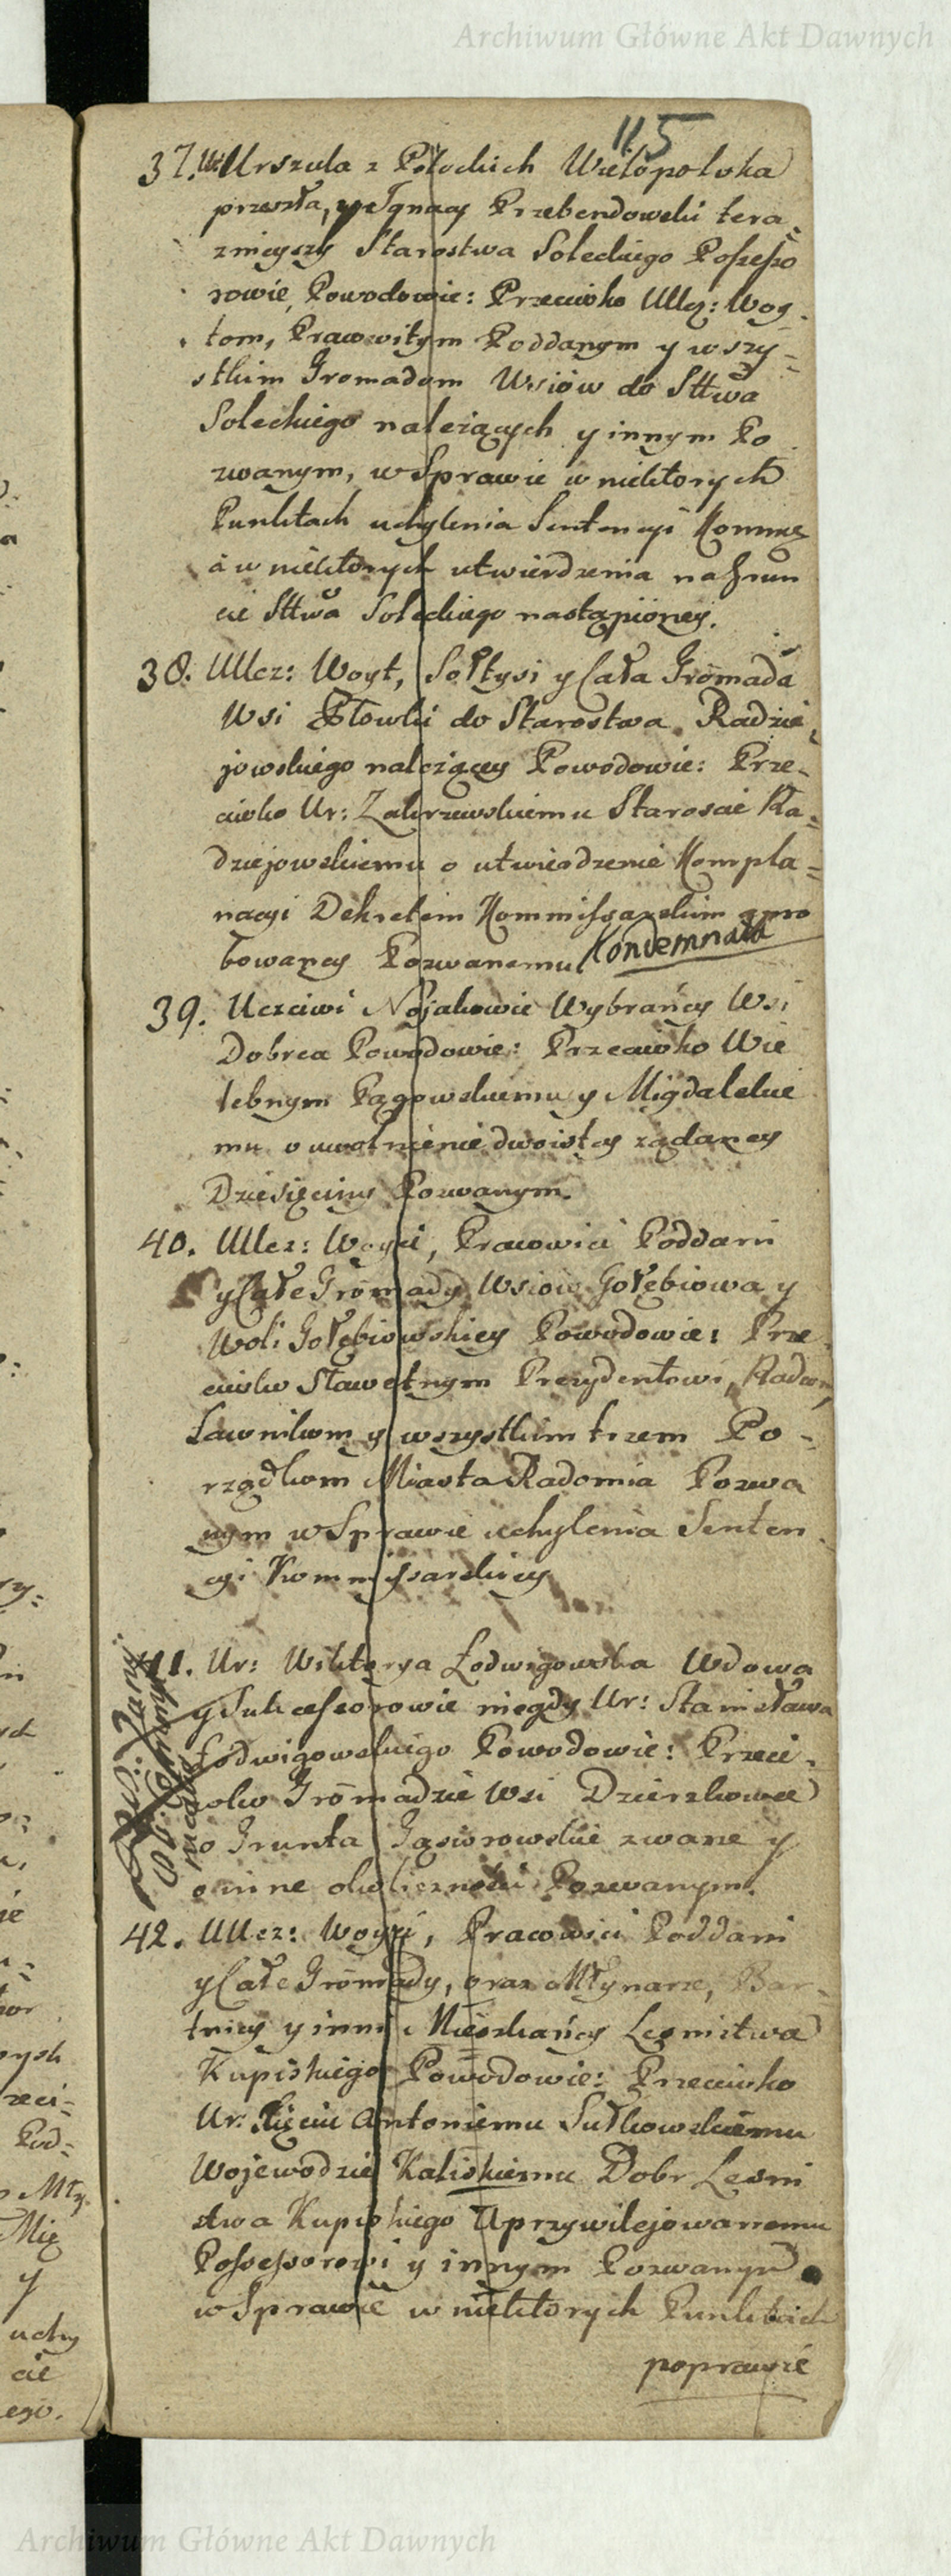 Archiwum Główne Akt Dawnych
115
37. Ur: Urszula z Potockich Wielopolska
przeszła, y Ignacy Przebendowski tera-
znieyszy Starostwa Soleckiego Possesso
rowie, Powodowie: Przeciwko Ullcz: Woy-
tom, Pracowitym Poddanym y wszy-
stkim Gromadom Wsiów do Sttwa
Soleckiego należących y innym Po
zwanym, w Sprawie w niektorych
Punktach uchylenia Sentencyi Kommis
á w niektorych utwierdzenia na Grun
cie Sttwa Soleckiego nastąpioney.
38. Ullcz: Woyt, Sołtysi y Cała Gromada
Wsi Płowki do Starostwa Radzie,
jowskiego należącey Powodowie: Prze-
ciwko Ur: Zakrzewskiemu Staroscie Ra-
dziejowskiemu o utwierdzenie Kompla-
nacyi Dekretem Kommissarskim apro
bowaney Pozwanemu Kondemnata
39. Uczciwi Nojakowie Wybrańcy Wsi
Dobrca Powodowie: Przeciwko Wie
lebnym Pągowskiemu y Migdalskie
mu o uwolnienie dwoistey żądaney
Dziesięciny Pozwanym.
40. Ullcz: Woyci, Pracowici Poddani
y Całe Gromady Wsiow Gołębiowa y
Woli Gołębiowskiey Powodowie: Prze
ciwko Sławetnym Prezydentowi, Radcom,
Ławnikom y wszystkim trzem Po-
rządkom Miasta Radomia Pozwa
nym w Sprawie uchylenia Senten
cyi Kommissarskiey
41. Ur: Wiktorya Łodwigowska Wdowa
y Sukcessorowie niegdy Ur: Stanisława
Łodwigowskiego Powodowie: Przeci-
wko Gromadzie Wsi Dzierzkowa
o Grunta Gąsiorowskie zwane y
o inne okoliczności Pozwanym.
42. Ullcz: Woyci, Pracowici Poddani
y Całe Gromady, oraz Młynarze, Bar-
tnicy y inni Mieszkańcy Lesnictwa
Kupiskiego Powodowie: Przeciwko
Ur: Xięciu Antoniemu Sułkowskiemu
Wojewodzie Kaliskiemu Dobr Lesni
stwa Kupiskiego Uprzywilejowanemu
Possessorowi y innym Pozwanym
w Sprawie w niektorych Punktach
poprawie
Archiwum Główne Akt Dawnych